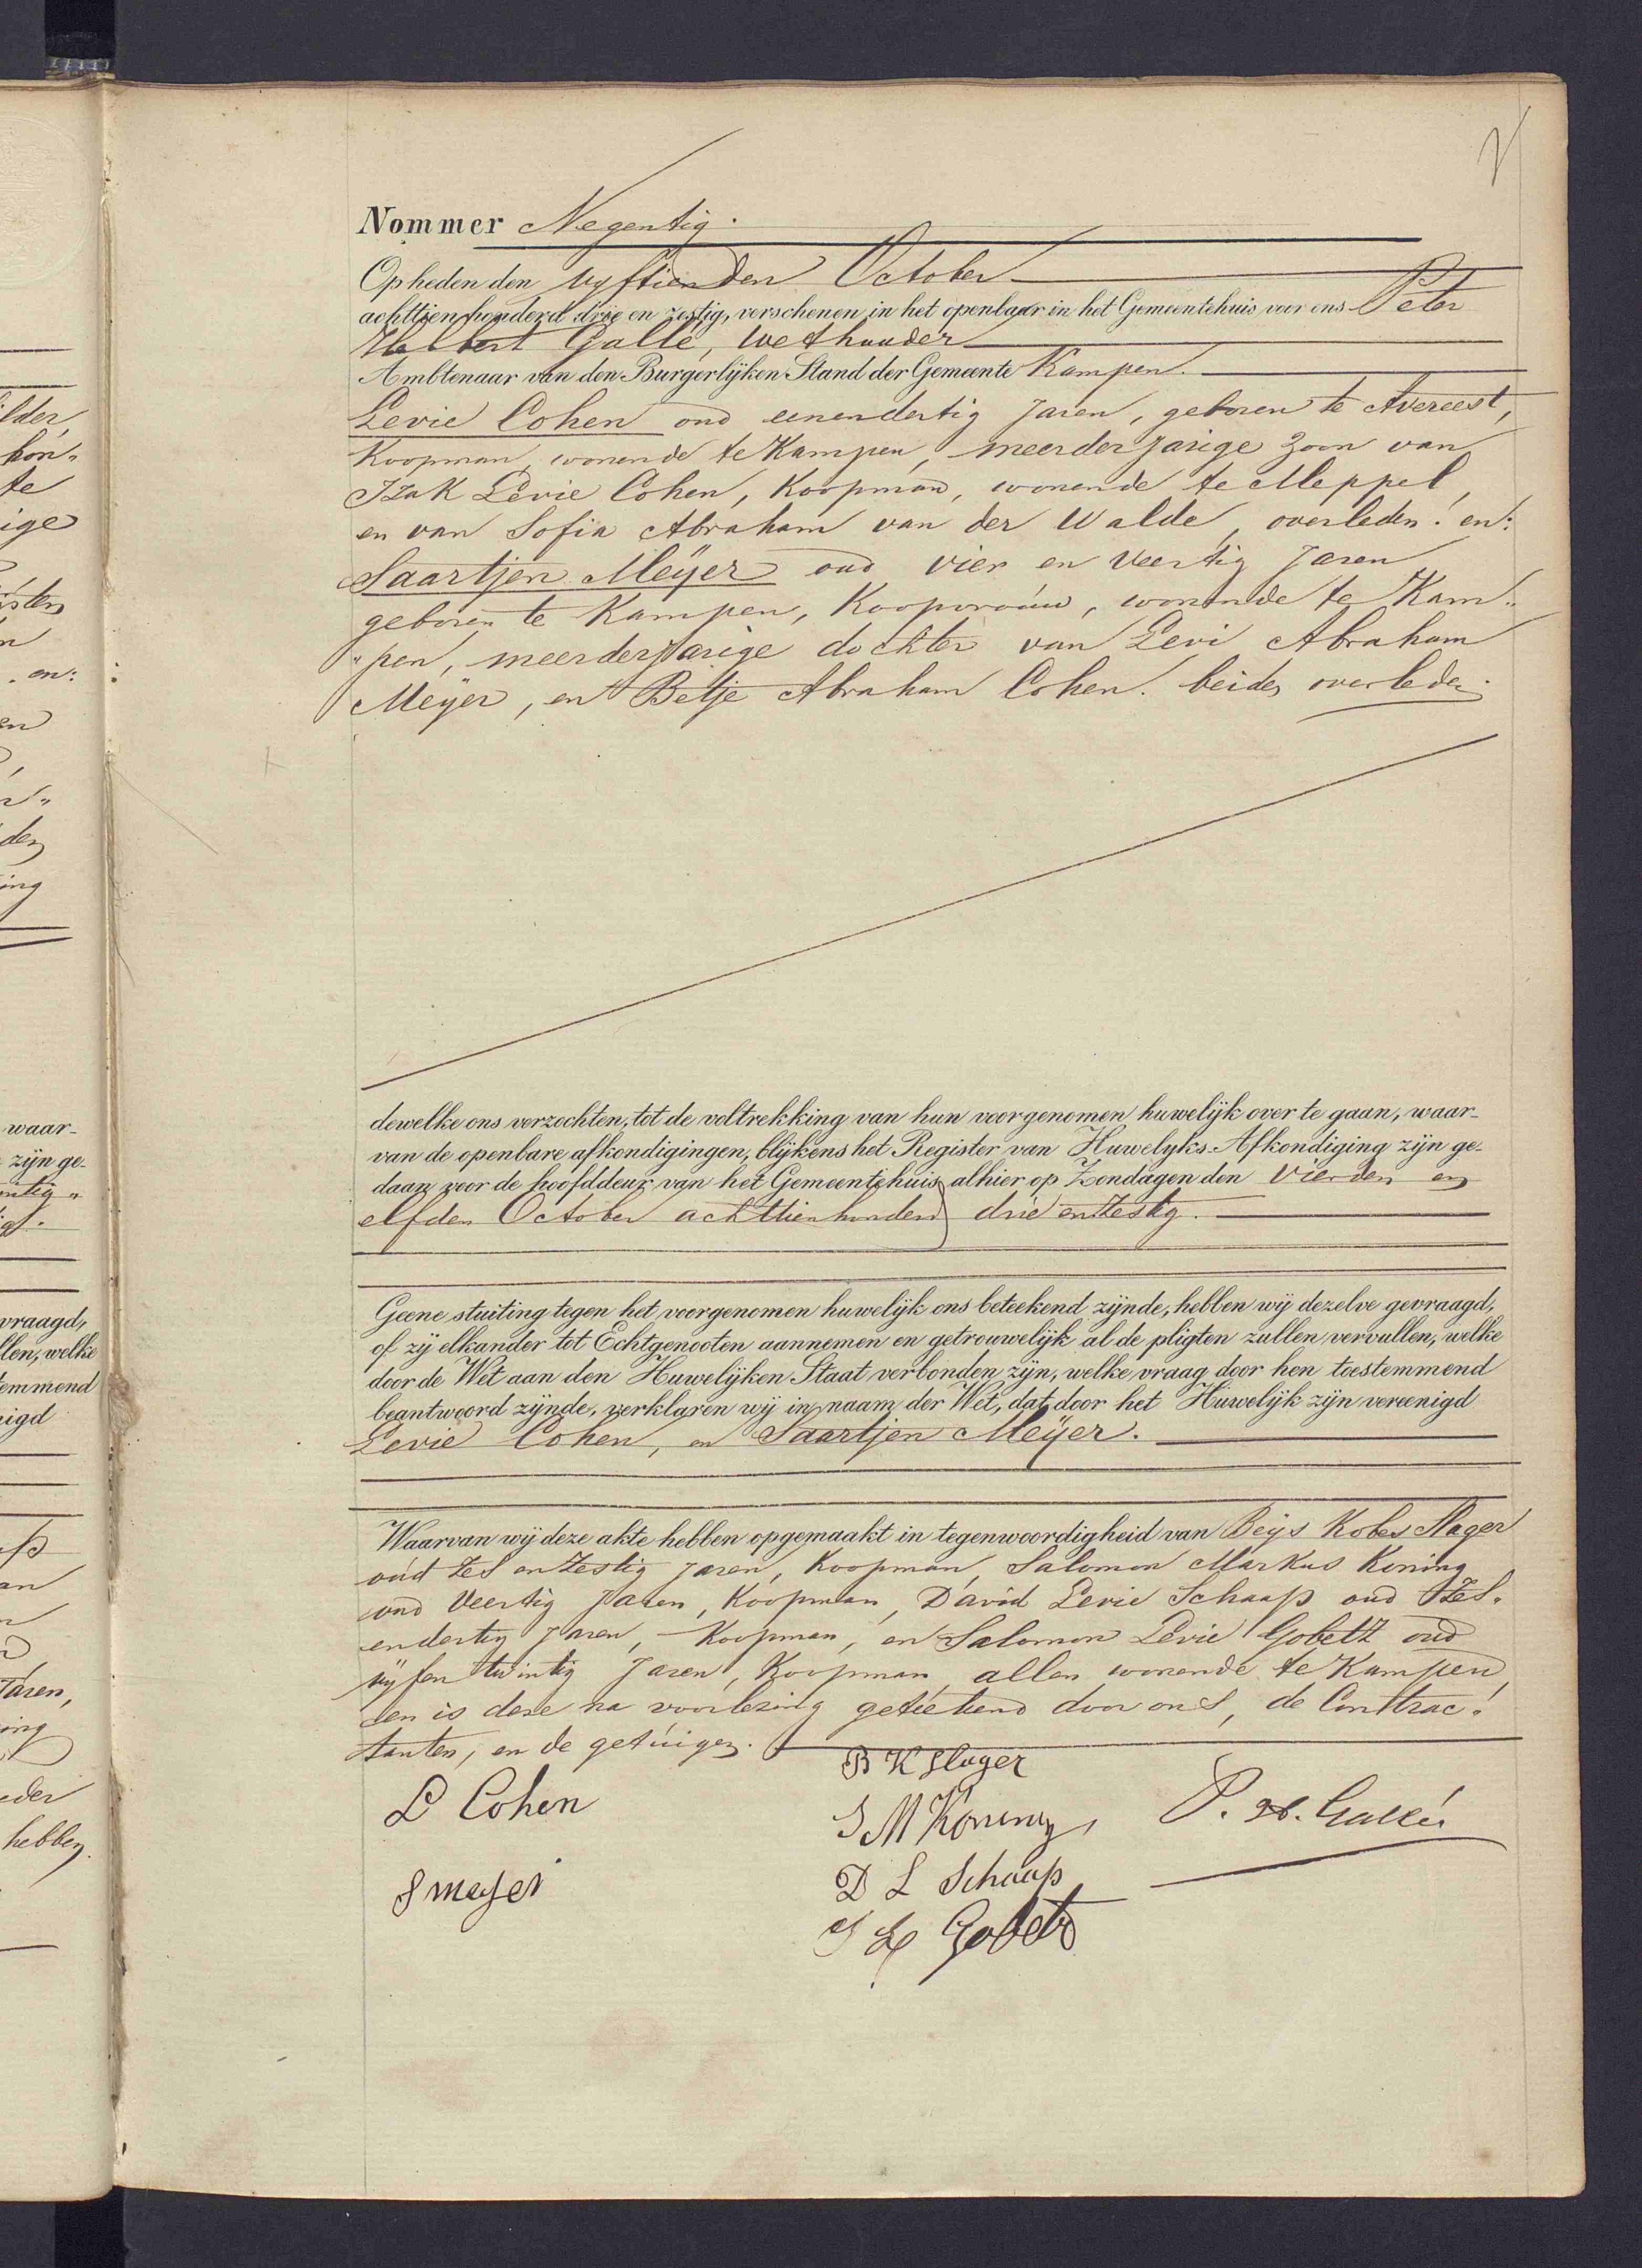 Nommer Negentig.
Op heden den vyftienden October
achttien honderd drie en zestig, verschenen in het openbaar in het Gemeentehuis voor ons Peter
Halbert Gallé, Wethouder
Ambtenaar van den Burgerlijken Stand der Gemeente Kampen.
Levie Cohen oud eenendertig Jaren, geboren te Avereest,
Koopman, wonende te Kampen, meerderjarige zoon van
Izak Levie Cohen, Koopman, wonende te Meppel,
en van Sofia Abraham van der Walde, overleden. en:
Saartjen Meÿer oud vier en veertig Jaren
geboren te Kampen, Koopvrouw, wonende te Kam„
„pen, meerderjarige dochter van Levi Abraham
Meÿer, en Betje Abraham Cohen. beiden overleden.
dewelke ons verzochten, tot de voltrekking van hun voorgenomen huwelijk over te gaan, waar-
van de openbare afkondigingen, blijkens het Register van Huwelyks-Afkondiging zijn ge-
daan voor de hoofddeur van het Gemeentehuis alhier op Zondagen den Vierden en
elfden October achttienhonderd drie en Zestig.
Geene stuiting tegen het voorgenomen huwelijk ons beteekend zijnde, hebben wij dezelve gevraagd,
of zij elkander tot Echtgenooten aannemen en getrouwelijk al de pligten zullen vervullen, welke
door de Wet aan den Huwelijken Staat verbonden zijn, welke vraag door hen toestemmend
beantwoord zijnde, verklaren wij in naam der Wet, dat door het Huwelijk zijn vereenigd
Levie Cohen, en Saartjen Meÿer.
Waarvan wij deze akte hebben opgemaakt in tegenwoordigheid van Beijs Kobes Slager
oud Zes en Zestig Jaren, Koopman, Salomon Markus Koning
oud Veertig Jaren, Koopman, David Levie Schaap oud Zes„
endertig Jaren, Koopman, en Salomon Levie Gobetz oud
vijf en twintig Jaren, Koopman, allen wonende te Kampen,
en is deze na voorlezing geteekend door ons, de Contrac„
tanten, en de getuigen.
B K Slager
L Cohen
S M Koning
P. H. Gallé
D L Schaap
S meyer
S L Gobets